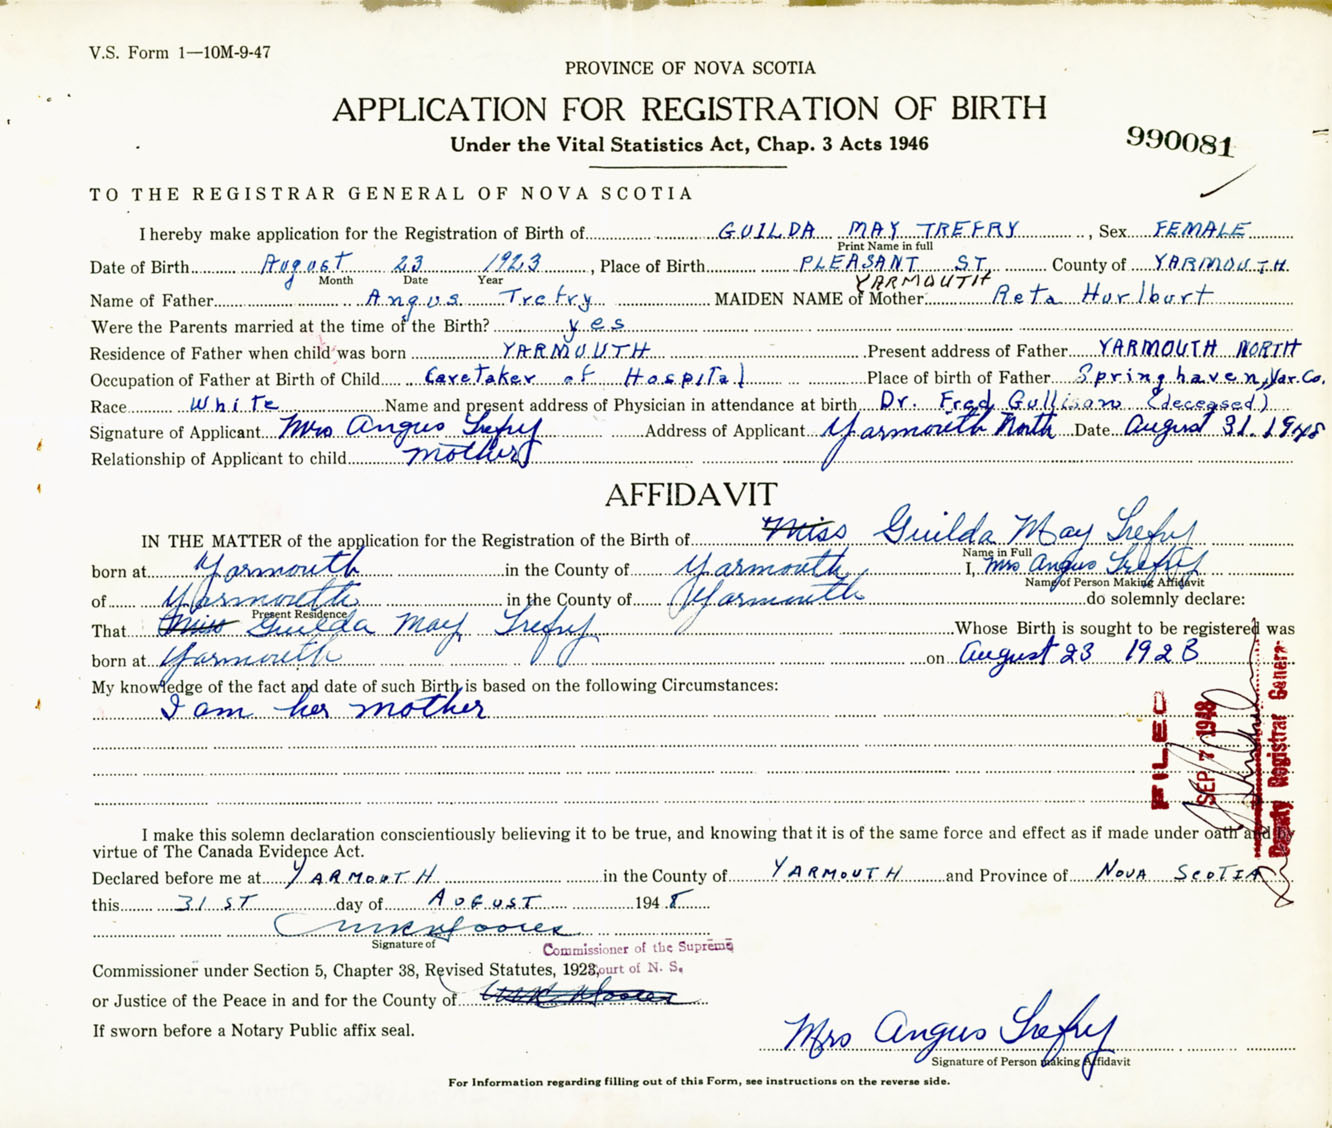 V.S. Form 1—10M-9-47
PROVINCE OF NOVA SCOTIA
APPLICATION FOR REGISTRATION OF BIRTH
Under the Vital Statistics Act, Chap. 3 Acts 1946
990081
TO THE REGISTRAR GENERAL OF NOVA SCOTIA
I hereby make application for the Registration of Birth of GUILDA MAY TREFRY, Sex FEMALE
Print Name in full
Date of Birth August 23 1923, Place of Birth PLEASANT ST County of YARMOUTH.
Month Date Year YARMOUTH
Name of Father Angus Trefry MAIDEN NAME of Mother Reta Hurlburt
Were the Parents married at the time of the Birth? yes
Residence of Father when child was born YARMOUTH Present address of Father YARMOUTH NORTH
Occupation of Father at Birth of Child Caretaker of Hospital Place of birth of Father Springhaven, Yar. Co.
Race White Name and present address of Physician in attendance at birth Dr. Fred Gullison (deceased)
Signature of Applicant Mrs Angus Trefry Address of Applicant Yarmouth North Date August 31. 1948
Relationship of Applicant to child mother
AFFIDAVIT
IN THE MATTER of the application for the Registration of the Birth of Miss Guilda May Trefry
Name in Full
born at Yarmouth in the County of Yarmouth, I, Mrs Angus Trefry
Name of Person Making Affidavit
of Yarmouth in the County of Yarmouth do solemnly declare:
Present Residence
That Miss Guilda May Trefry Whose Birth is sought to be registered was
born at Yarmouth on August 23 1923
My knowledge of the fact and date of such Birth is based on the following Circumstances:
I am her mother
FILED
SEP 7 1948
Deputy Registrar General
I make this solemn declaration conscientiously believing it to be true, and knowing that it is of the same force and effect as if made under oath and by
virtue of The Canada Evidence Act.
Declared before me at YARMOUTH in the County of YARMOUTH and Province of NOVA SCOTIA
this 31ST day of AUGUST 1948
Signature of
Commissioner of the Supreme
Court of N. S.
Commissioner under Section 5, Chapter 38, Revised Statutes, 1923,
or Justice of the Peace in and for the County of
If sworn before a Notary Public affix seal.
Mrs Angus Trefry
Signature of Person making Affidavit
For Information regarding filling out of this Form, see instructions on the reverse side.